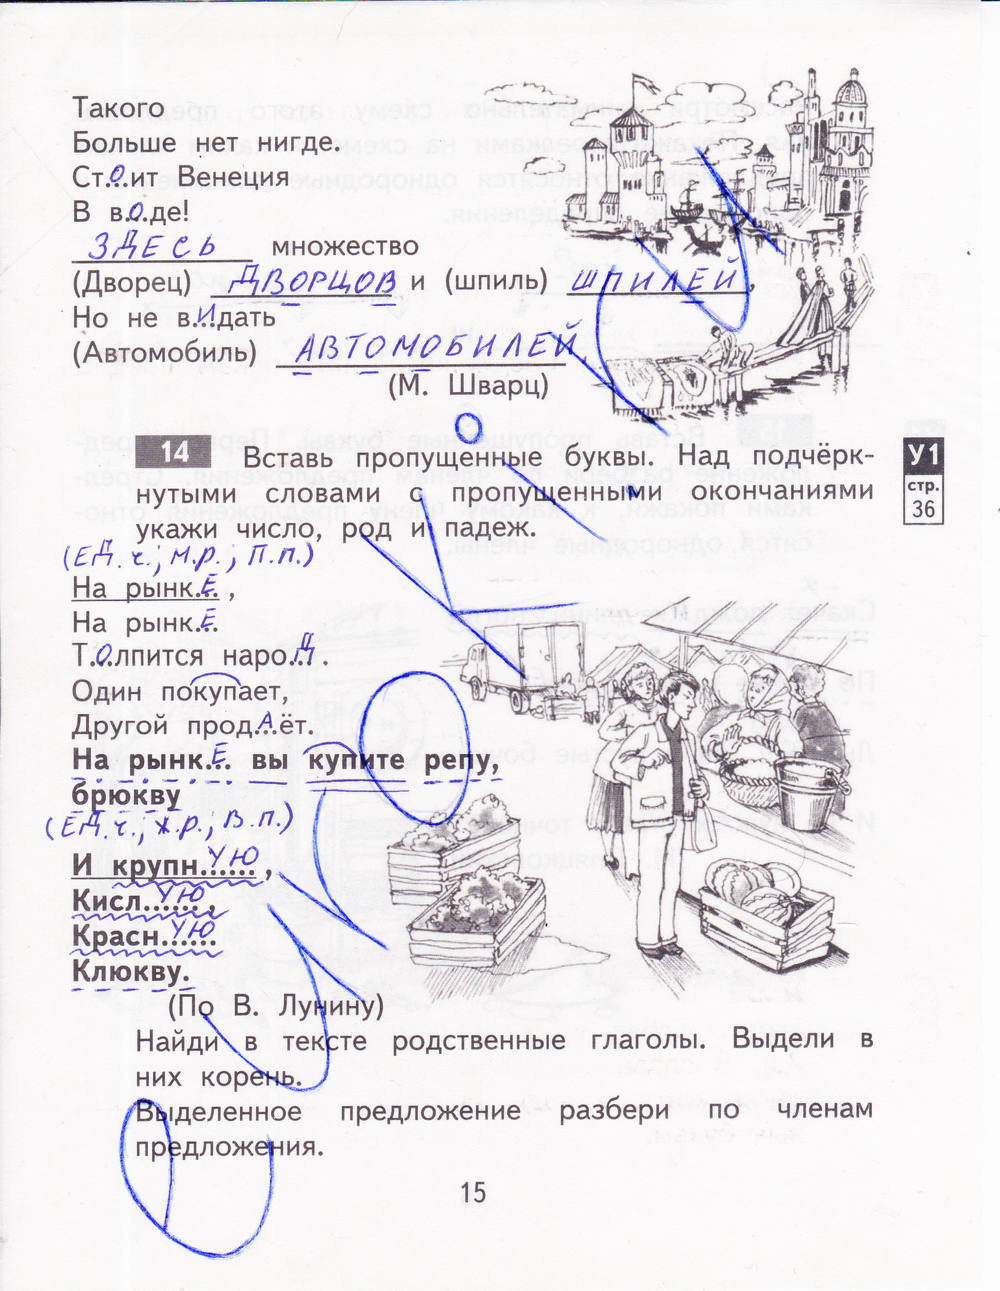 Такого
Больше нет нигде.
Ст.О.ит Венеция
В в.О.де!
ЗДЕСЬ множество
(Дворец) ДВОРЦОВ и (шпиль) ШПИЛЕЙ,
Но не в.И.дать
(Автомобиль) АВТОМОБИЛЕЙ
(М. Шварц)
14 Вставь пропущенные буквы. Над подчёрк-
нутыми словами с пропущенными окончаниями
укажи число, род и падеж.
У1
стр.
36
(ЕД.ч.; М.р.; П.п.)
На рынк.Е.,
На рынк.Е.
Т.О.лпится наро.Д.
Один покупает,
Другой прод.А.ёт
На рынк.Е. вы купите репу,
брюкву
(ЕД.ч.; ж.р.; В.п.)
И крупн...УЮ...,
Кисл...УЮ...,
Красн...УЮ...
Клюкву.
(По В. Лунину)
Найди в тексте родственные глаголы. Выдели в
них корень.
Выделенное предложение разбери по членам
предложения.
15